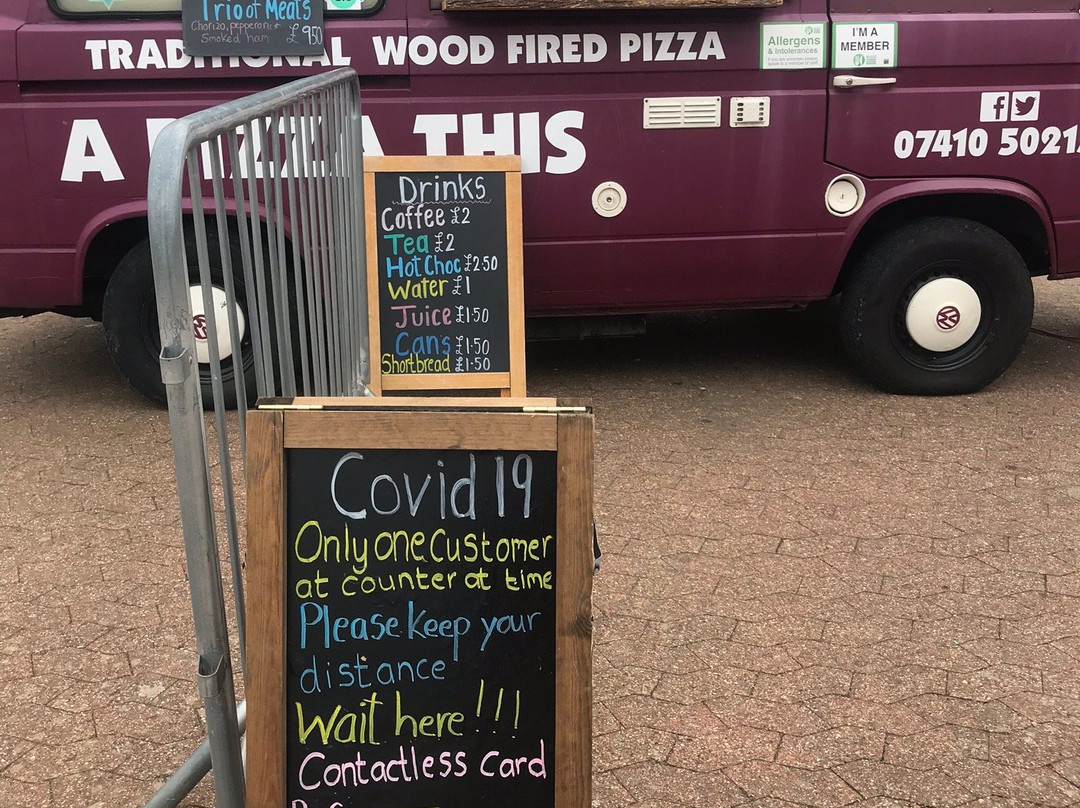 Trio of Meats
Chorizo, pepperoni &
Smoked ham £9.50
TRADITIONAL WOOD FIRED PIZZA
Allergens
& Intolerances
I'M A
MEMBER
A PIZZA THIS
07410 5021
Drinks
Coffee £2
Tea £2
Hot Choc £2.50
Water £1
Juice £1.50
Cans £1.50
Shortbread £1.50
Covid 19
Only one customer
at counter at time
Please keep your
distance
Wait here!!!
Contactless card